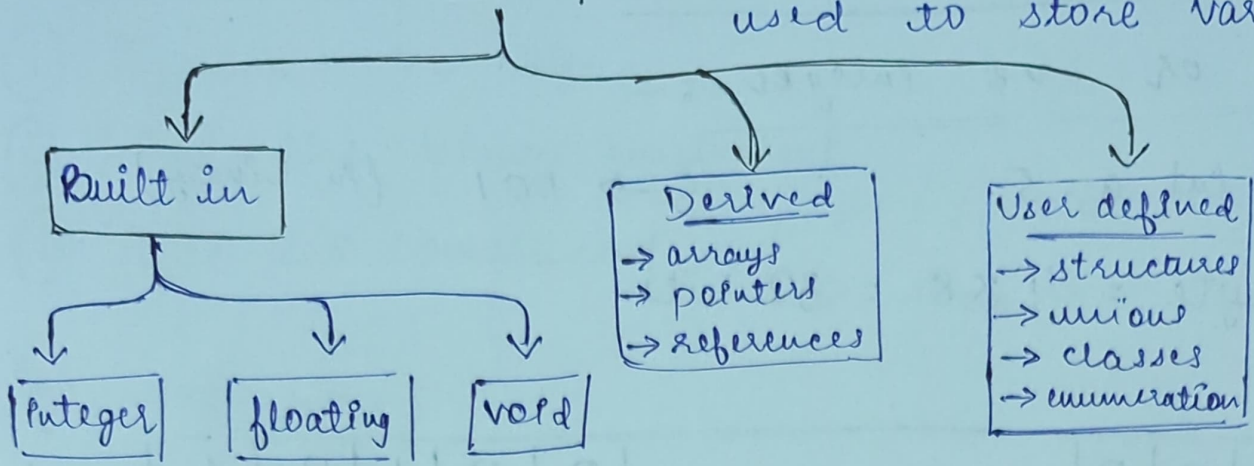 used to store
Built in
Derived
→ arrays
→ pointers
→ references
User defined
→ structures
→ unions
→ classes
→ enumeration
integer
floating
void